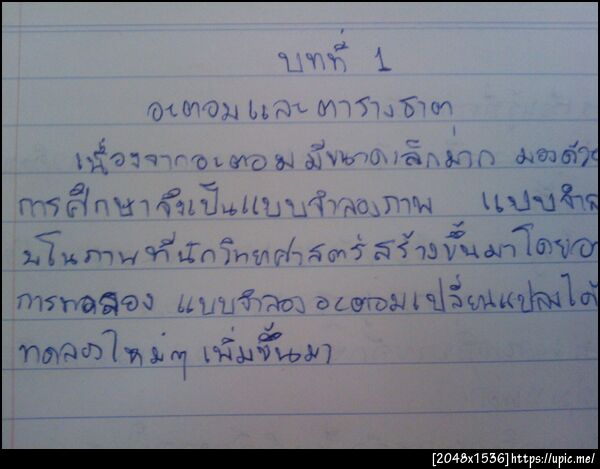 บทที่ 1
อะตอมและตารางธาตุ
เนื่องจากอะตอมมีขนาดเล็กมาก มองด้วย
การศึกษาจึงเป็นแบบจำลองภาพ แบบจำล
มโนภาพที่นักวิทยาศาสตร์สร้างขึ้นมาโดยอา
การทดลอง แบบจำลองอะตอมเปลี่ยนแปลงได้
ทดลองใหม่ๆ เพิ่มขึ้นมา
[2048x1536]https://upic.me/